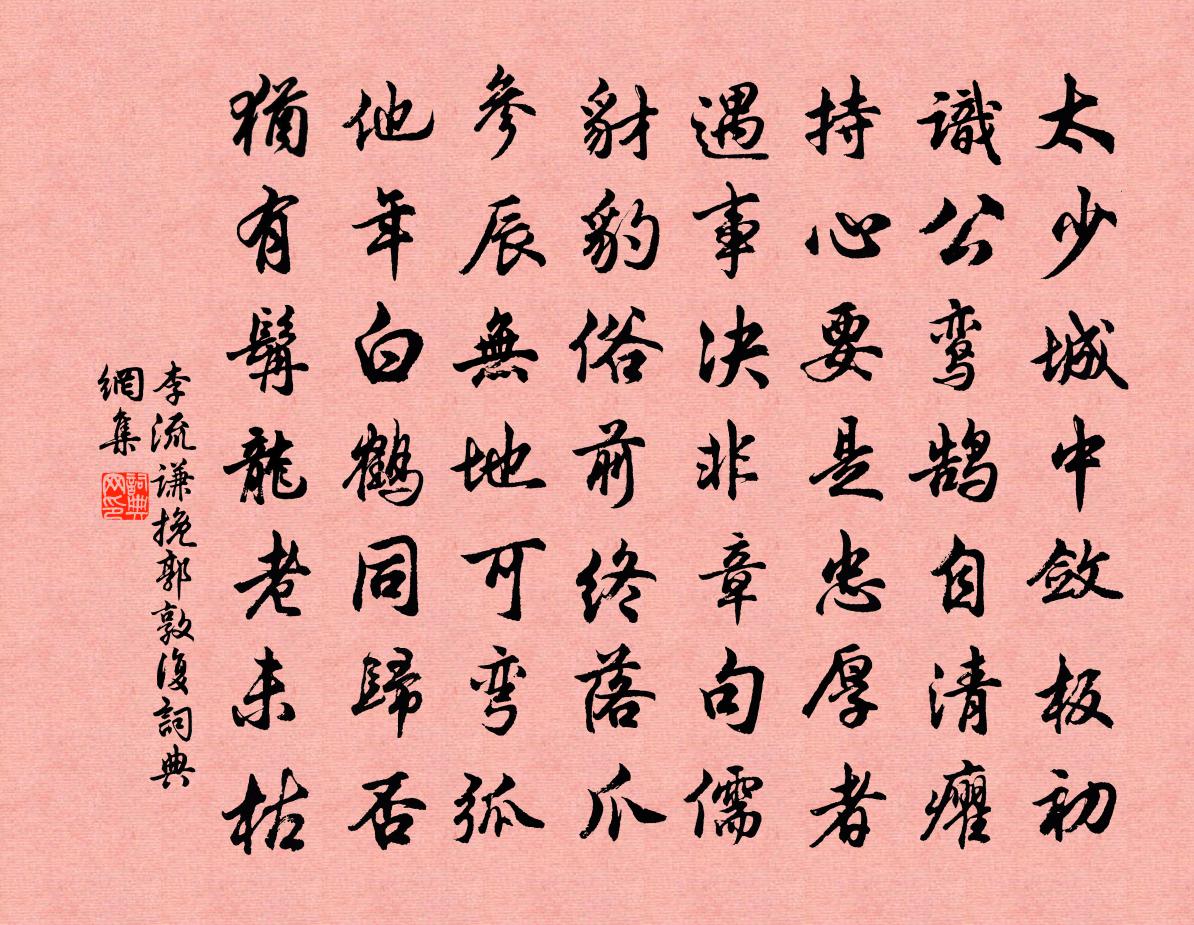 太少城中斂板初
識公鸾鹄自清癯
持心要是忠厚者
遇事決非章句儒
豺豹俗前終落爪
參辰無地可弯弧
他年白鶴同歸否
猶有髯龍老未枯
李流谦挽郭敦復詞典
網集
詞典网印